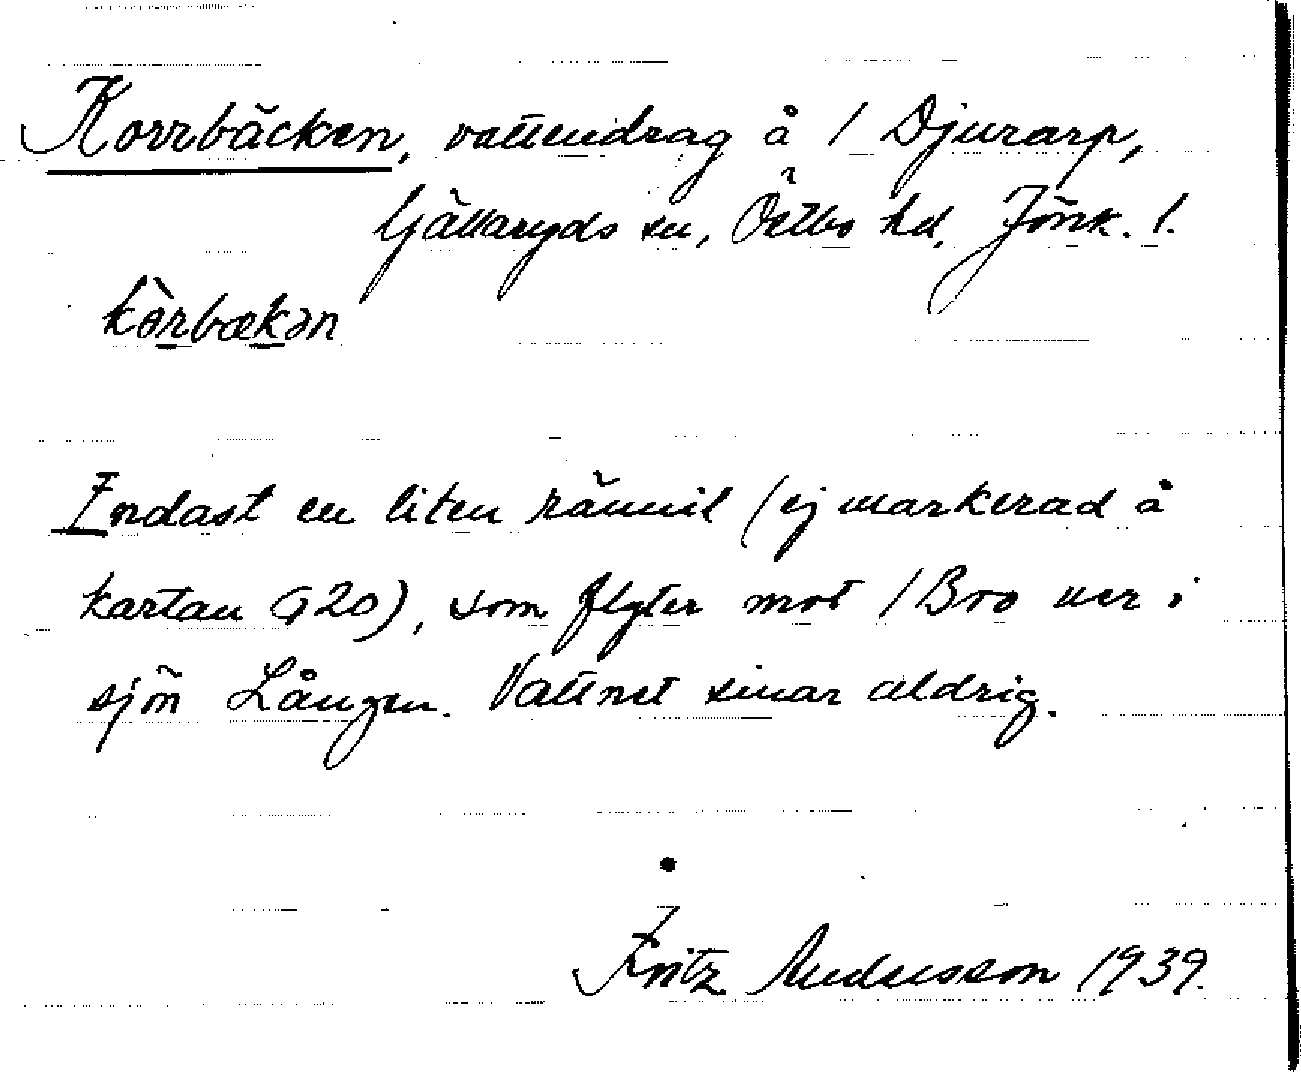 Korrbäcken, vattendrag å / Djurarp,
Gällaryds sn, Östbo hd, Jönk. l.
kòrbækən
Endast en liten rännil (ej markerad å
kartan G20), som flyter mot / Bro ner i
sjön Lången. Vattnet sinar aldrig.
Fritz Andersson 1939.